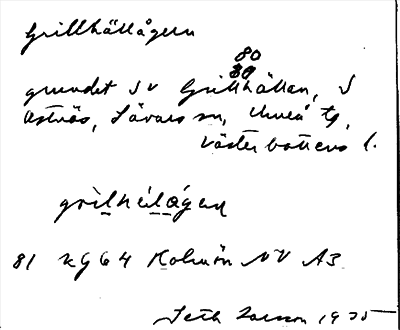 Grillhällågern
80
grundet SV Grillhällan, S
Ostnäs, Sävars sn, Umeå tg,
Västerbottens l.
grìlhèilágeṇ
81 KG 64 Holmön NV A3
Seth Larsson 1935